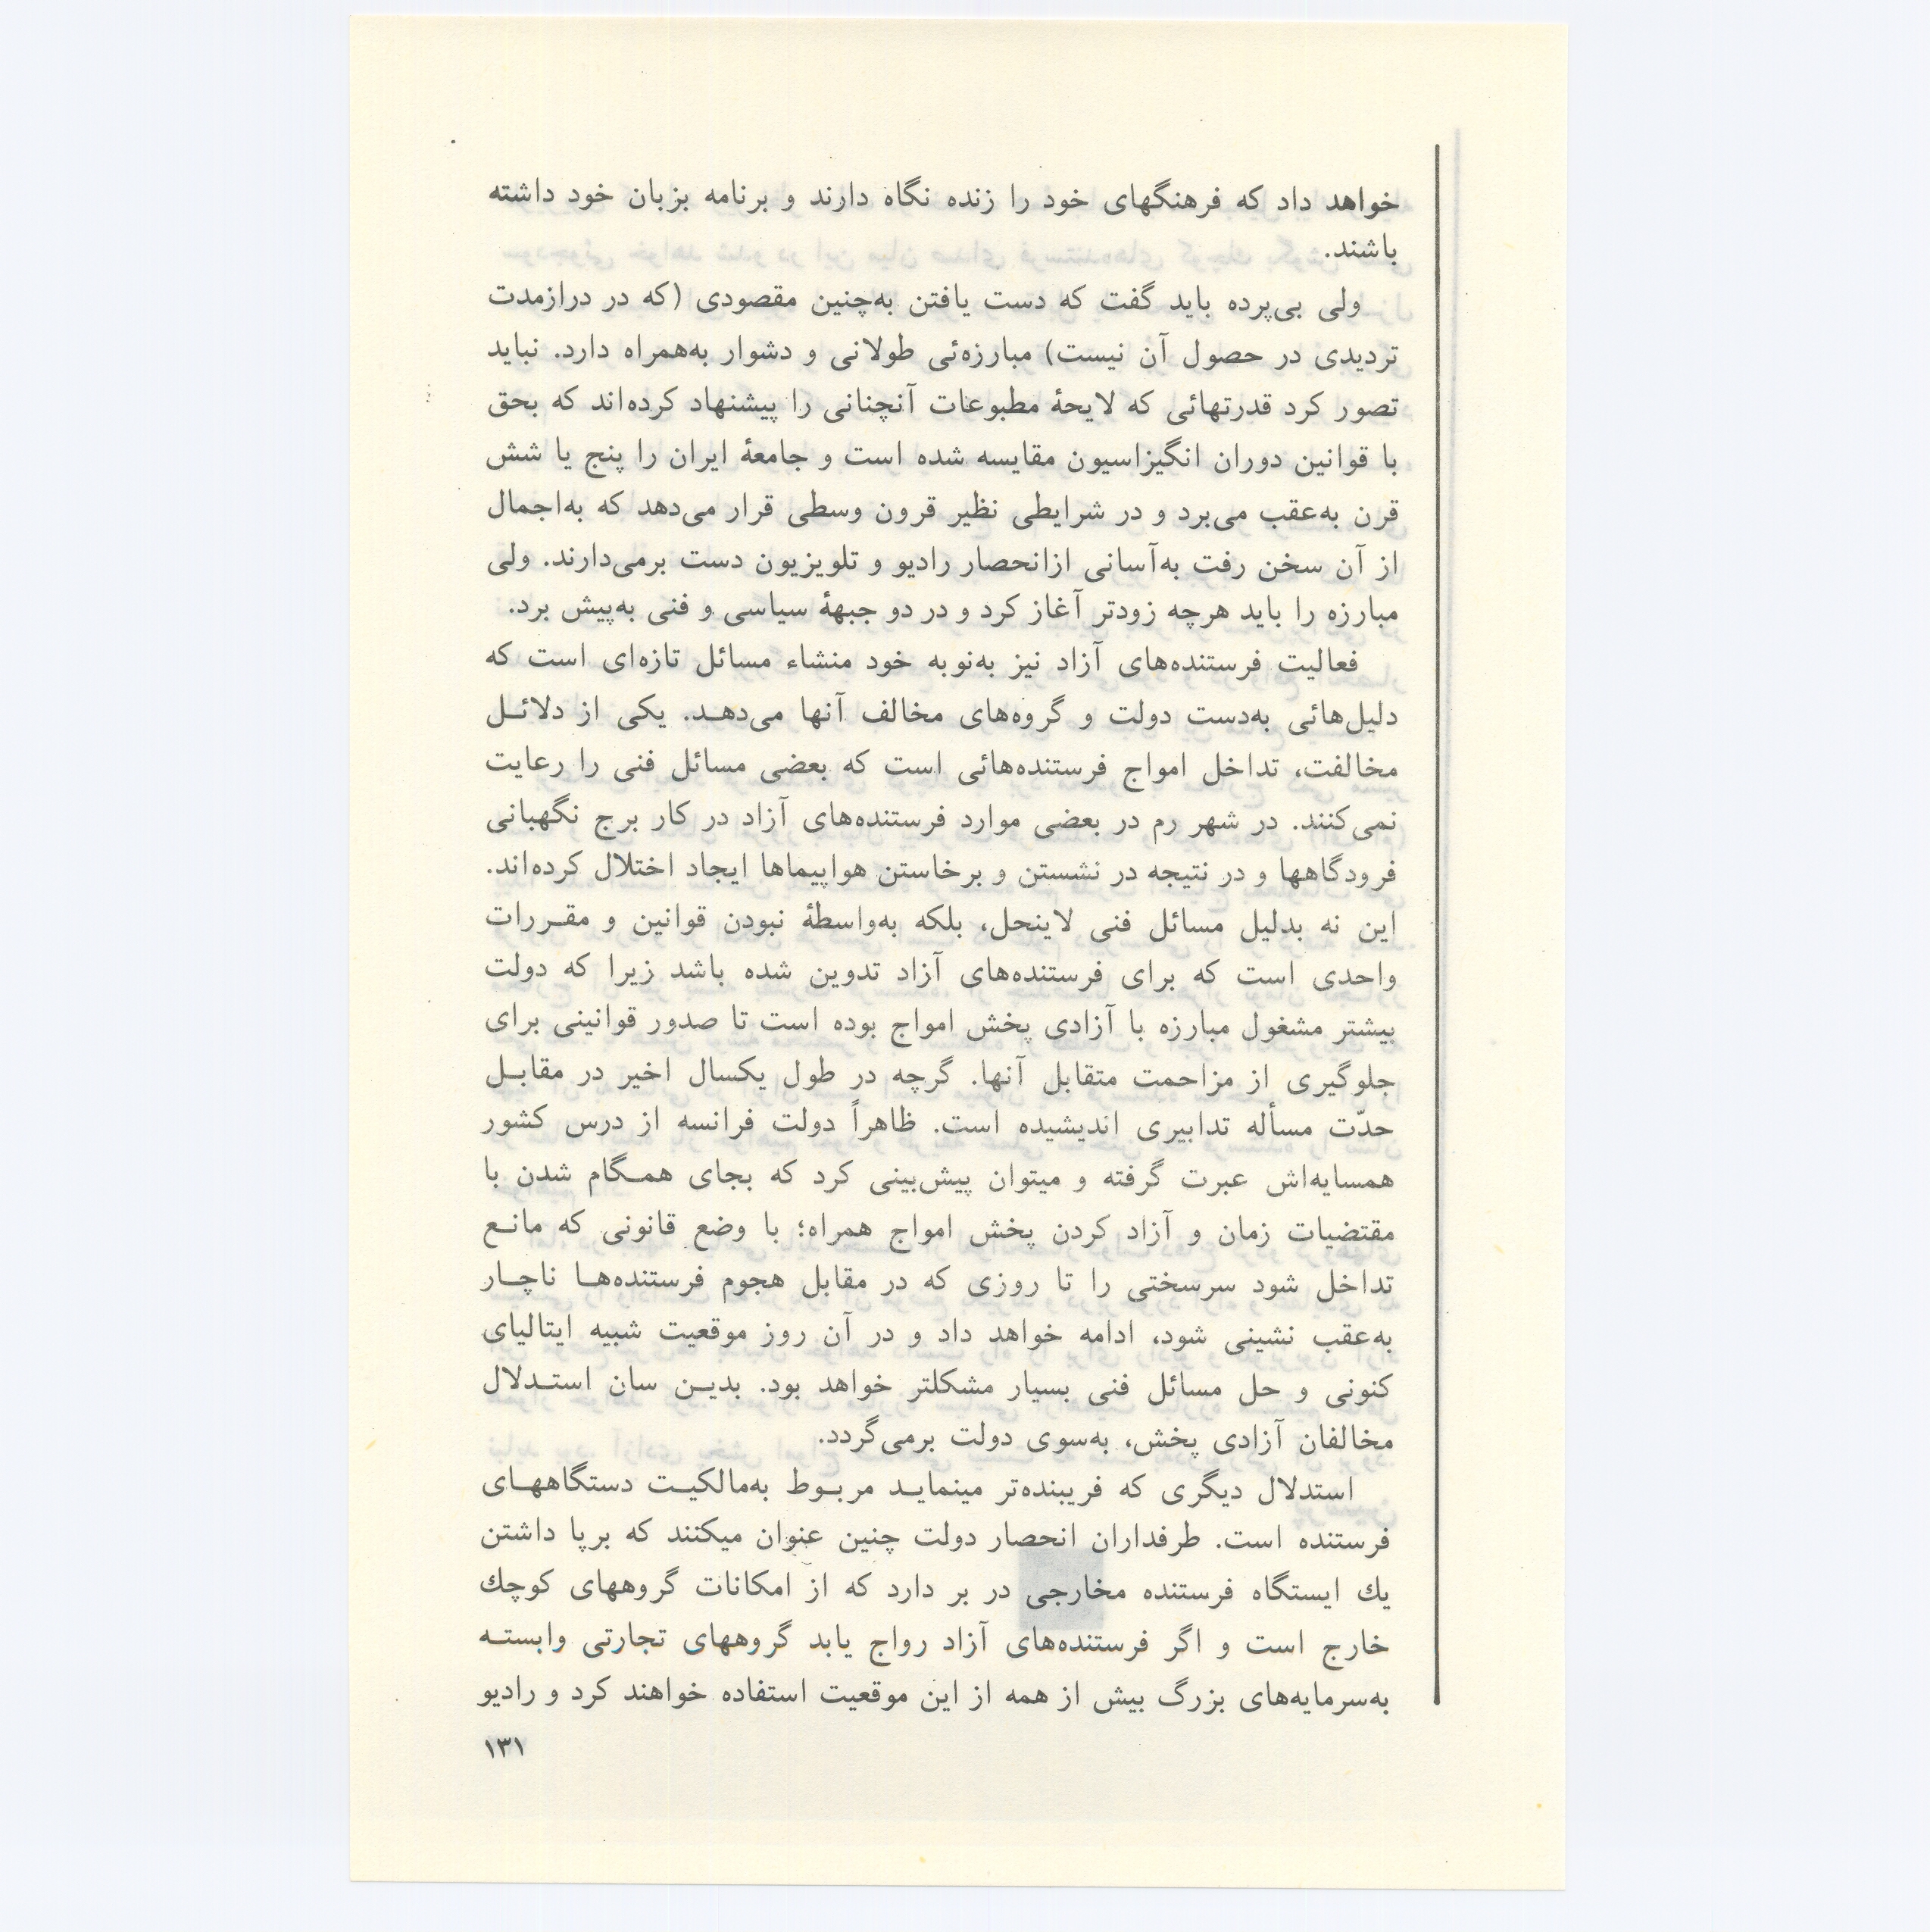 خواهد داد که فرهنگهای خود را زنده نگاه دارند و برنامه بزبان خود داشته
باشند.
ولی بی‌پرده باید گفت که دست یافتن به‌چنین مقصودی (که در درازمدت
تردیدی در حصول آن نیست) مبارزه‌ئی طولانی و دشوار به‌همراه دارد. نباید
تصور کرد قدرتهائی که لایحهٔ مطبوعات آنچنانی را پیشنهاد کرده‌اند که بحق
با قوانین دوران انگیزاسیون مقایسه شده است و جامعهٔ ایران را پنج یا شش
قرن به‌عقب می‌برد و در شرایطی نظیر قرون وسطی قرار می‌دهد که به‌اجمال
از آن سخن رفت به‌آسانی ازانحصار رادیو و تلویزیون دست برمی‌دارند. ولی
مبارزه را باید هرچه زودتر آغاز کرد و در دو جبههٔ سیاسی و فنی به‌پیش برد.
فعالیت فرستنده‌های آزاد نیز به‌نوبه خود منشاء مسائل تازه‌ای است که
دلیل‌هائی به‌دست دولت و گروه‌های مخالف آنها می‌دهـد. یکی از دلائـل
مخالفت، تداخل امواج فرستنده‌هائی است که بعضی مسائل فنی را رعایت
نمی‌کنند. در شهر رم در بعضی موارد فرستنده‌های آزاد در کار برج نگهبانی
فرودگاهها و در نتیجه در نشستن و برخاستن هواپیماها ایجاد اختلال کرده‌اند.
این نه بدلیل مسائل فنی لاینحل، بلکه به‌واسطهٔ نبودن قوانین و مقـررات
واحدی است که برای فرستنده‌های آزاد تدوین شده باشد زیرا که دولت
بیشتر مشغول مبارزه با آزادی پخش امواج بوده است تا صدور قوانینی برای
جلوگیری از مزاحمت متقابل آنها. گرچه در طول یکسال اخیر در مقابـل
حدّت مسأله تدابیری اندیشیده است. ظاهراً دولت فرانسه از درس کشور
همسایه‌اش عبرت گرفته و میتوان پیش‌بینی کرد که بجای همـگام شدن با
مقتضیات زمان و آزاد کردن پخش امواج همراه؛ با وضع قانونی که مانـع
تداخل شود سرسختی را تا روزی که در مقابل هجوم فرستنده‌هـا ناچـار
به‌عقب نشینی شود، ادامه خواهد داد و در آن روز موقعیت شبیه ایتالیای
کنونی و حل مسائل فنی بسیار مشکلتر خواهد بود. بدیـن سان استـدلال
مخالفان آزادی پخش، به‌سوی دولت برمی‌گردد.
استدلال دیگری که فریبنده‌تر مینمایـد مربـوط به‌مالکیـت دستگاههـای
فرستنده است. طرفداران انحصار دولت چنین عنوان میکنند که برپا داشتن
یك ایستگاه فرستنده مخارجی در بر دارد که از امکانات گروههای کوچك
خارج است و اگر فرستنده‌های آزاد رواج یابد گروههای تجارتی وابستـه
به‌سرمایه‌های بزرگ بیش از همه از این موقعیت استفاده خواهند کرد و رادیو
۱۳۱